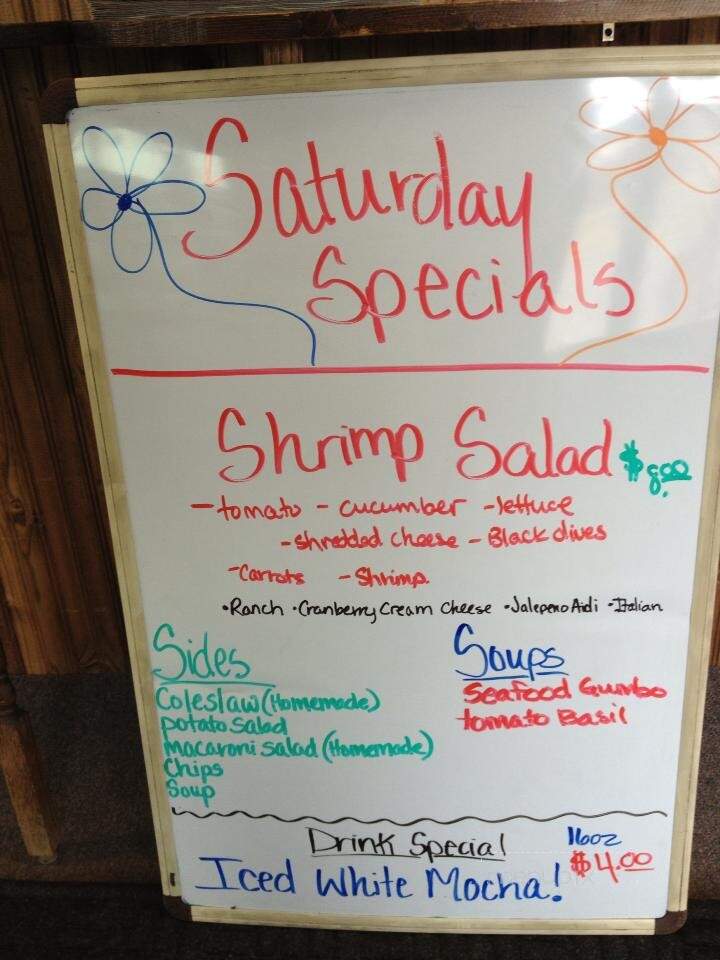 Saturday
Specials
Shrimp Salad $8.00
- tomato - cucumber - lettuce
- shredded cheese - Black olives
- Carrots - Shrimp
• Ranch • Cranberry Cream Cheese • Jalepeno Aidi • Italian
Sides
Coleslaw (Homemade)
potato salad
Macaroni salad (Homemade)
Chips
Soup
Soups
Seafood Gumbo
tomato Basil
Drink Special 16oz
Iced White Mocha! $4.00